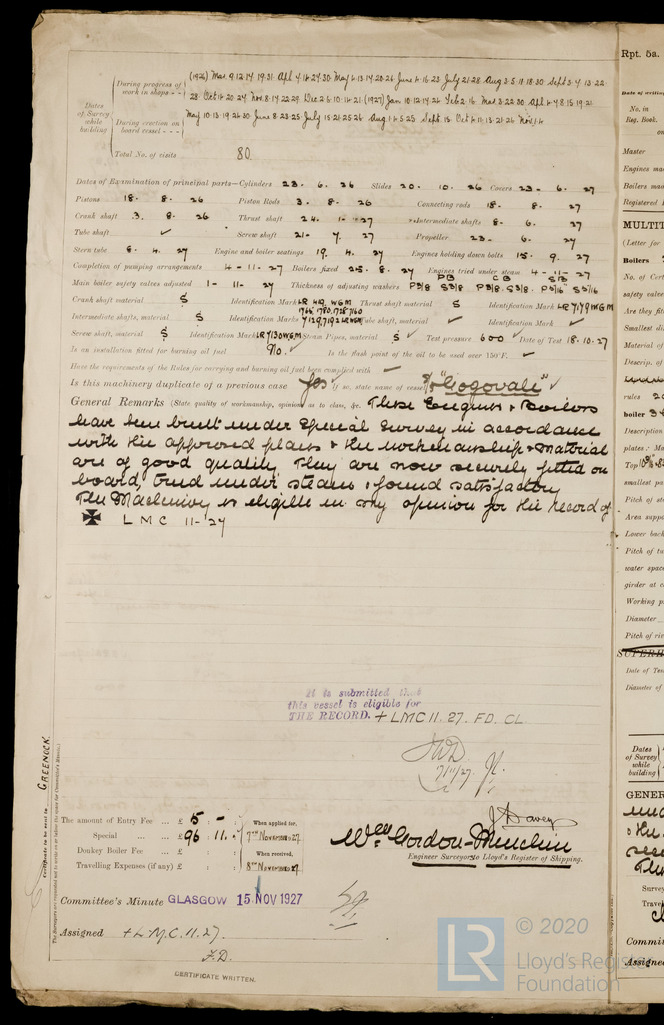 Rpt. 5a.
Dates of Survey while building
During progress of work in shops - -
(1926) Mar. 9.12.17.19.31 Apl 7.16.27.30 May 6.13.14.20.26 June 4.16.23 July 21.28 Aug 3.5.11.18.30 Sept 3.7.13.22
28 Oct 14.20.27 Nov 8.17.22.29 Dec 2.6.10.14.21 (1927) Jan 10.12.17.26 Feb 2.16 Mar 3.22.30 Apl 4.7.8.15.19.21
During erection on board vessel - - -
May 10.13.19.26.30 June 8.23.25 July 15.21.25.26 Aug 1.4.5.25 Sept. 15 Oct 4.11.13.21.26 Nov 1.4
Total No. of visits 80.
Dates of Examination of principal parts—Cylinders 23. 6. 26 Slides 20. 10. 26 Covers 23. 6. 27
Pistons 18. 8. 26 Piston Rods 3. 8. 26 Connecting rods 18. 8. 27
Crank shaft 3. 8. 26 Thrust shaft 24. 1. 27 Intermediate shafts 8. 6. 27
Tube shaft ✓ Screw shaft 21. 7. 27 Propeller 23. 6. 27
Stern tube 8. 4. 27 Engine and boiler seatings 19. 4. 27 Engines holding down bolts 15. 9. 27
Completion of pumping arrangements 4-11-27 Boilers fixed 25. 8. 27 Engines tried under steam 4-11-27
Main boiler safety valves adjusted 1-11-27 Thickness of adjusting washers PB CB SB
Crank shaft material S Identification Mark LR 419 WGM Thrust shaft material S Identification Mark LR 7179 WGM
Intermediate shafts, material S Identification Marks Tube shaft, material ✓ Identification Mark ✓
Screw shaft, material S Identification Mark LR 7130 WGM Steam Pipes, material S ✓ Test pressure 600 ✓ Date of Test 18.10.27
Is an installation fitted for burning oil fuel No. ✓ Is the flash point of the oil to be used over 150°F. ✓
Have the requirements of the Rules for carrying and burning oil fuel been complied with —
Is this machinery duplicate of a previous case Yes ✓ If so, state name of vessel "Gogovale" ✓
General Remarks (State quality of workmanship, opinions as to class, &c. These Engines & Boilers
have been built under Special Survey in accordance
with the approved plans & the workmanship & material
are of good quality. They are now securely fitted on
board, tried under steam & found satisfactory
The Machinery is eligible in my opinion for the record of
✠ L M C 11-27
It is submitted that
this vessel is eligible for
THE RECORD. + LMC 11. 27. FD. CL
The amount of Entry Fee ... £ 5 : - :
When applied for,
Special ... ... £ 96 : 11 :
7th November 27
Donkey Boiler Fee ... £ : :
When received,
Travelling Expenses (if any) £ : :
8th November 27
Wm Gordon-Menchin
Engine Surveyor to Lloyd's Register of Shipping.
Committee's Minute GLASGOW 15 NOV 1927
Assigned + L.M.C. 11. 27.
F.D.
CERTIFICATE WRITTEN.
Certificate to be sent to GREENOCK.
© 2020
LR
Lloyd's Register
Foundation